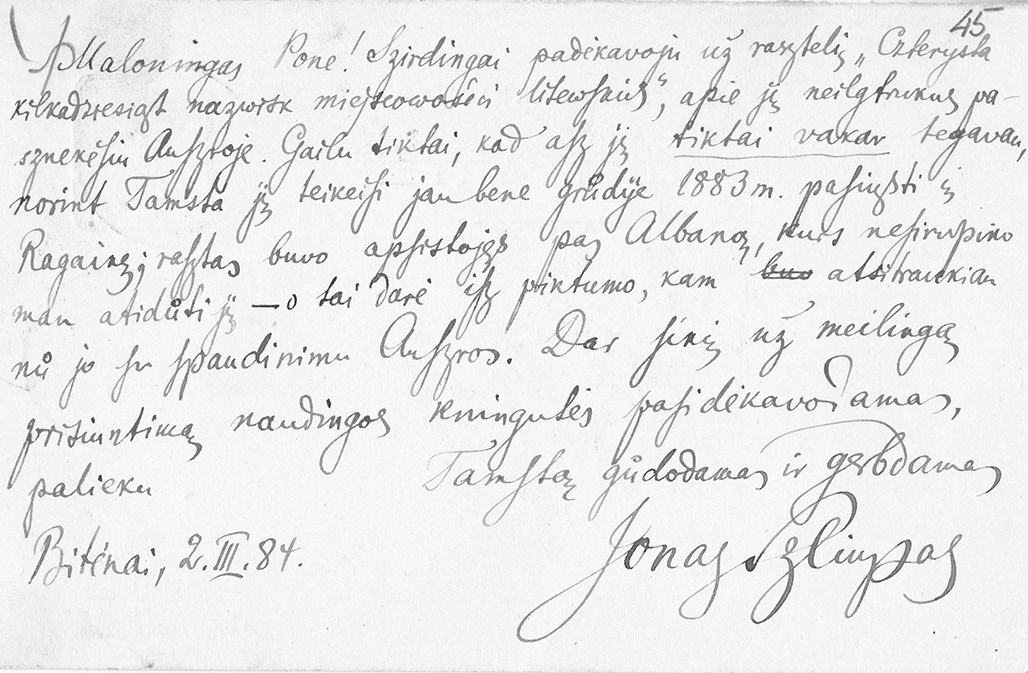 45
Maloningas Pone! Szirdingai padėkavoju už rasztelį „Czterysta
kilkadziesiąt nazwisk miejscowości litewskich“, apie jį neilgtrukus pa-
sznekėsiu Auszroje. Gailu tiktai, kad asz jį tiktai vakar tegavau,
norint Tamsta jį teikeisi jau bene grůdyje 1883 m. pasiųsti į
Ragainę; rasztas buvo apsistojęs pas Albaną, kurs nesirupino
man atidůti jį — o tai darė isz piktumo, kam buvo atsitraukiau
nů jo su spaudinimu Auszros. Dar sinį už meilingą
prisiuntimą naudingos kningutės pasidėkavodamas,
palieku Tamstą gůdodamas ir gerbdamas
Bitėnai, 2.III.84. Jonas Szliupas